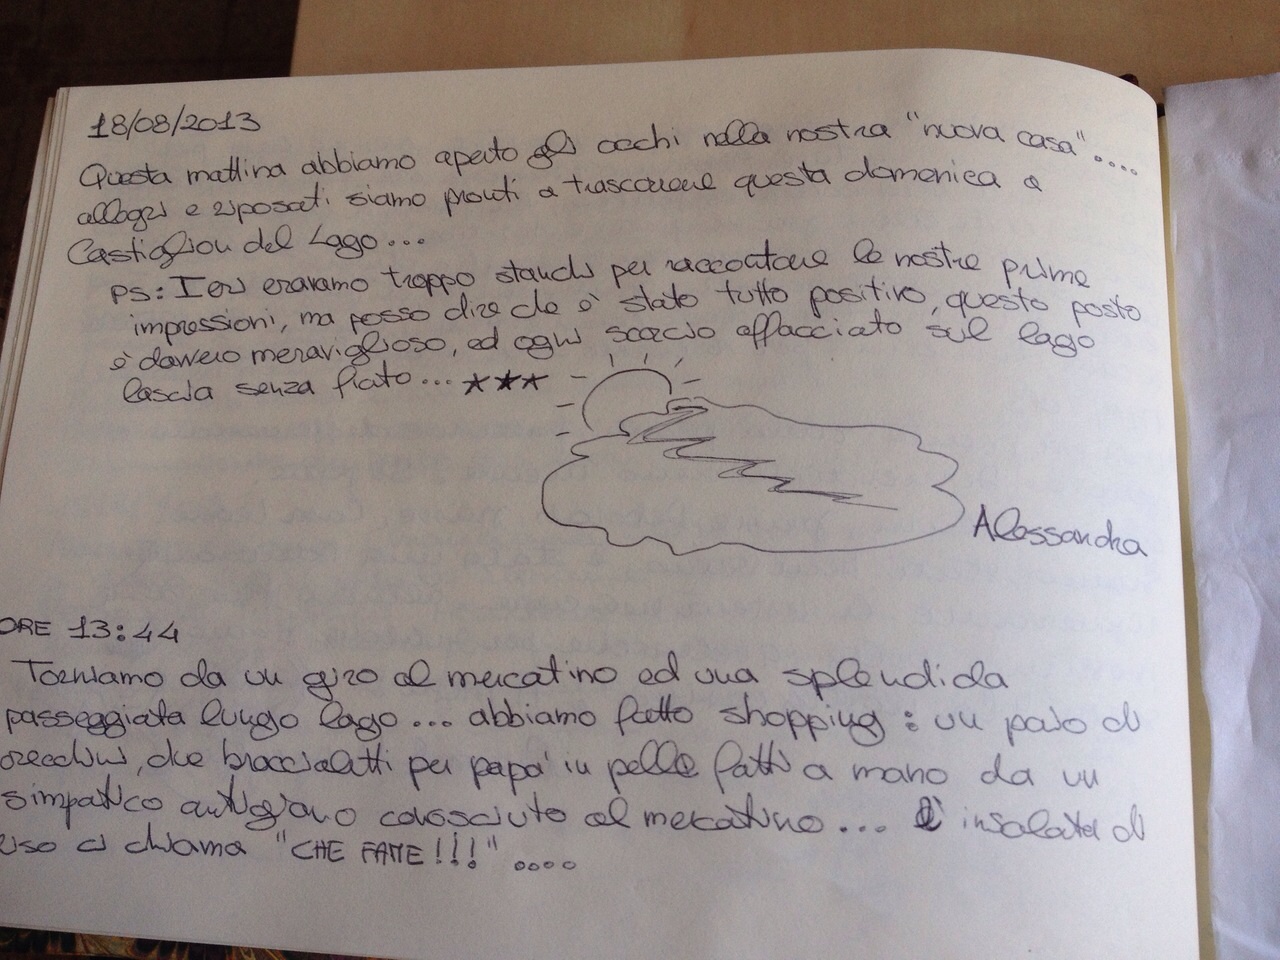 18/08/2013
Questa mattina abbiamo aperto gli occhi nella nostra "nuova casa"....
allegri e riposati siamo pronti a trascorrere questa domenica a
Castiglion del Lago...
PS: Ieri eravamo troppo stanchi per raccontare le nostre prime
impressioni, ma posso dire che è stato tutto positivo, questo posto
è davvero meraviglioso, ed ogni scorcio affacciato sul lago
lascia senza fiato... ★★★
Alessandra
ORE 13:44
Torniamo da un giro al mercatino ed una splendida
passeggiata lungo lago... abbiamo fatto shopping: un paio di
orecchini, due braccialetti per papà in pelle fatti a mano da un
simpatico artigiano conosciuto al mercatino... L' insalata di
riso ci chiama "CHE FAME!!!"....